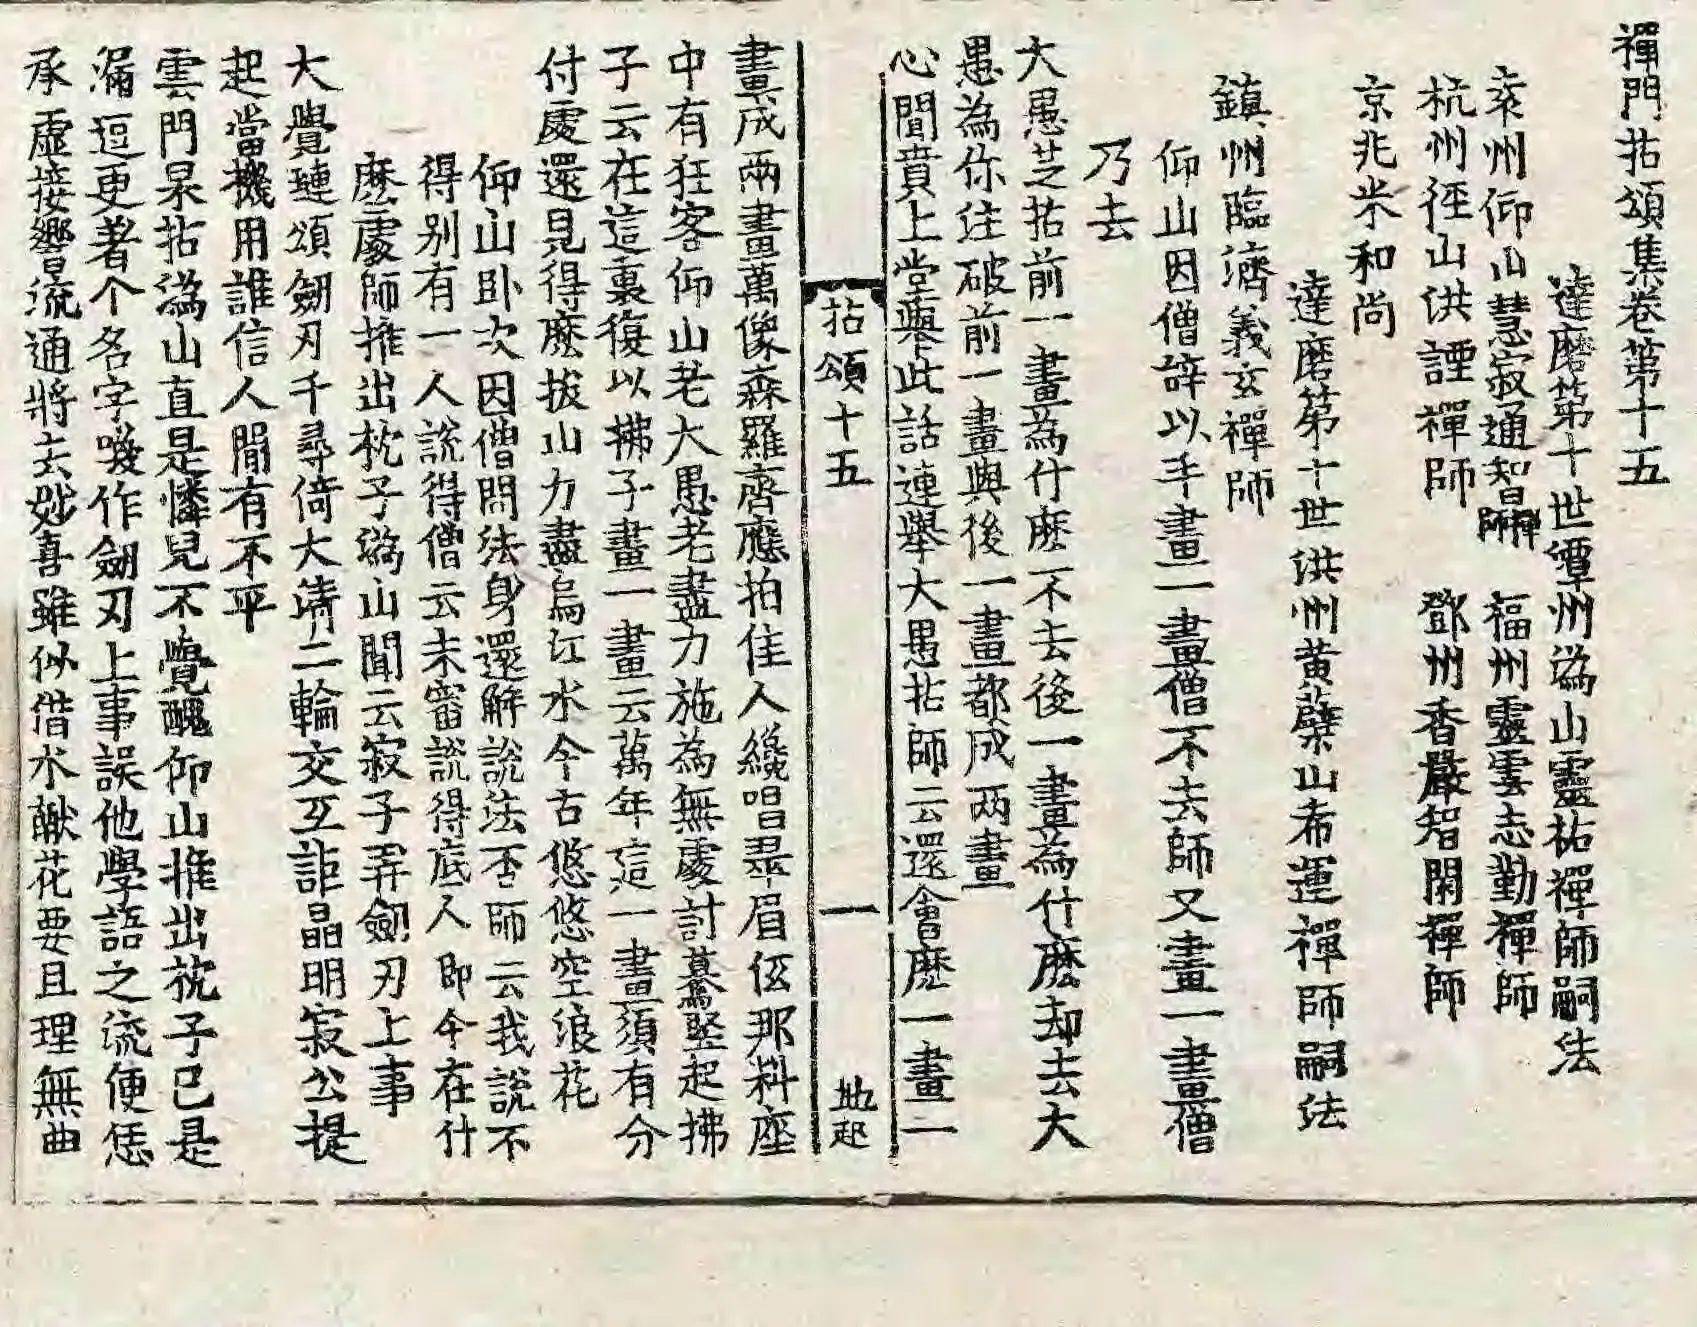 禪門拈頌集卷第十五
達磨第十世潭州溈山靈祐禪師嗣法
袁州仰山慧寂通智禪師 福州靈雲志勤禪師
杭州徑山洪諲禪師 鄧州香嚴智閑禪師
京兆米和尚
達磨第十世洪州黄蘗山希運禪師嗣法
鎮州臨濟義玄禪師
仰山因僧辞以手畫一畫僧不去師又畫一畫僧
乃去
大愚芝拈前一畫為什麽不去後一畫為什麽却去大
愚為你注破前一畫與後一畫都成兩畫
心聞賁上堂舉此話連舉大愚拈師云還會麽一畫二
拈頌十五
一
地起
畫成兩畫萬像森羅齊應拍佳人纔唱翠眉低那料座
中有狂客仰山老大愚老盡力施為無處討驀竪起拂
子云在這裏復以拂子畫一畫云萬年這一畫須有分
付處還見得麽拔山力盡烏江水今古悠悠空浪花
仰山卧次因僧問法身還解說法否師云我說不
得别有一人說得僧云未審說得底人即今在什
麽處師推出枕子溈山聞云寂子弄劒刃上事
大覺璉頌劒刃千尋倚大淸二輪交互詎晶明寂公提
起當機用誰信人間有不平
雲門杲拈溈山直是憐兒不覺醜仰山推出枕子已是
漏逗更着个名字喚作劒刃上事誤他學語之流便恁
承虛接響流通將去妙喜雖似借水獻花要且理無曲